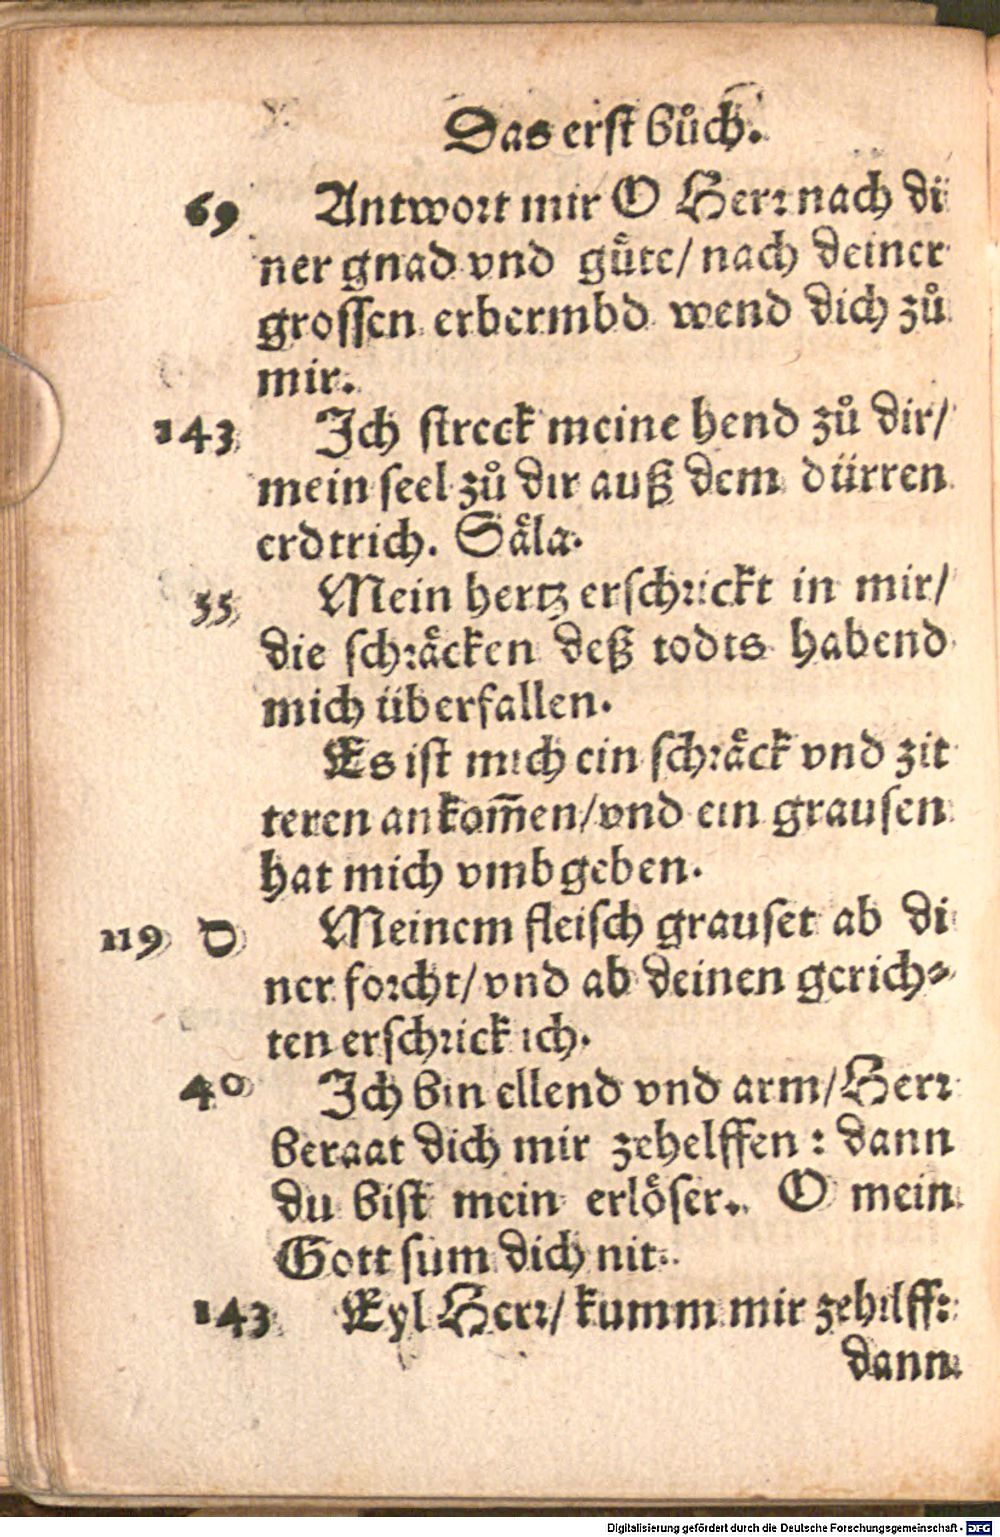 Das erst bůch.
69 Antwort mir O Herr nach di
ner gnad vnd gůte/ nach deiner
grossen erbermbd wend dich zů
mir.
143 Ich streck meine hend zů dir/
mein seel zů dir auß dem dürren
erdtrich. Säla.
55 Mein hertz erschrickt in mir/
die schräcken deß todts habend
mich überfallen.
Es ist mich ein schräck vnd zit
teren ankom̃en/ vnd ein grausen
hat mich vmbgeben.
119 D Meinem fleisch grauset ab di
ner forcht/ vnd ab deinen gerich-
ten erschrick ich.
40 Ich bin ellend vnd arm/ Herr
beraat dich mir zehelffen: dann
du bist mein erlöser. O mein
Gott sum dich nit.
143 Eyl Herr/ kumm mir zehilff:
dann
Digitalisierung gefördert durch die Deutsche Forschungsgemeinschaft - DFG